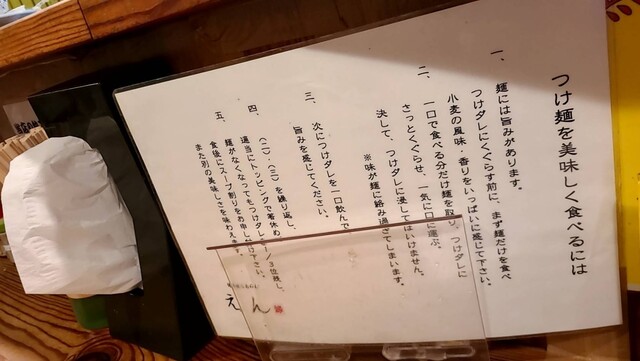 つけ麺を美味しく食べるには
一、麺には旨みがあります。
つけダレにくぐらす前に、まず麺だけを食べ
小麦の風味、香りをいっぱいに感じて下さい。
二、一口で食べる分だけ麺を取り、つけダレに
さっとくぐらせ、一気に口に運ぶ。
決して、つけダレに浸してはいけません。
※味が麺に絡み過ぎてしまいます。
三、次につけダレを一口飲んで
旨みを感じてください。
四、(二)、(三)を繰り返し、
適当にトッピングで箸休め
五、麺がなくなってもつけダレを1/3位残し、
食後にスープ割りをお申し付け下さい。
また別の美味しさを味わえます。
えん